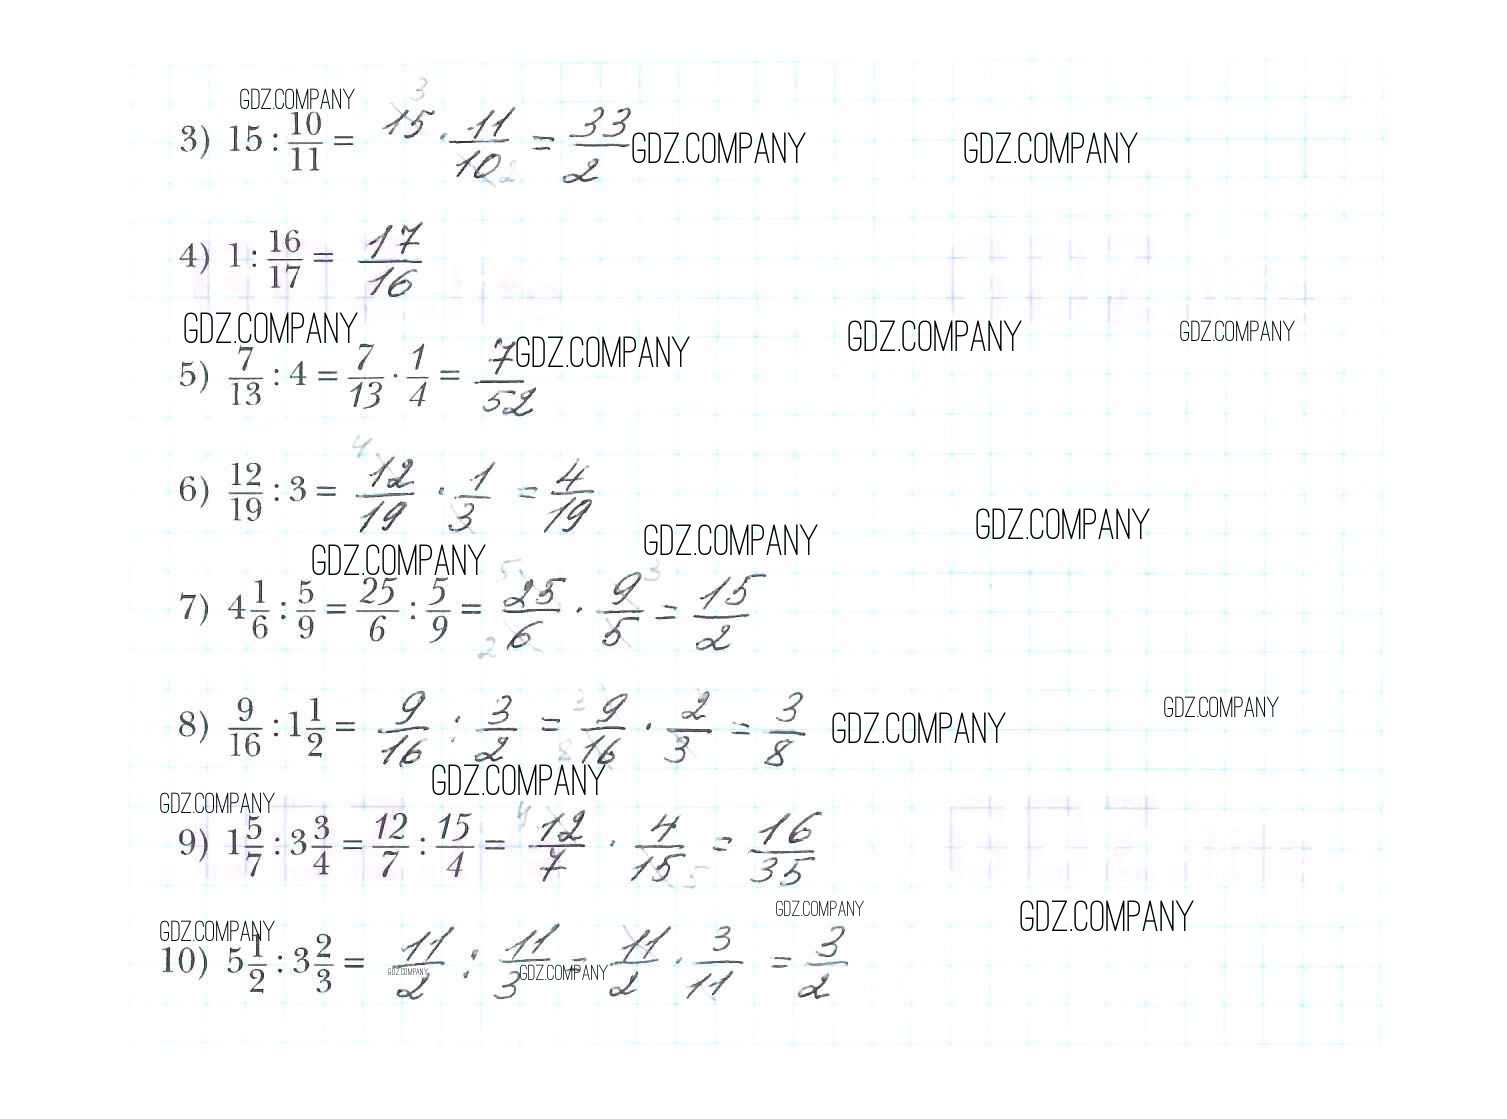 GDZ.COMPANY
3) 15 : 10/11 = 15 · 11/10 = 33/2 GDZ.COMPANY GDZ.COMPANY
3
2
4) 1 : 16/17 = 17/16
GDZ.COMPANY GDZ.COMPANY GDZ.COMPANY GDZ.COMPANY
5) 7/13 : 4 = 7/13 · 1/4 = 7/52
4
6) 12/19 : 3 = 12/19 · 1/3 = 4/19
GDZ.COMPANY GDZ.COMPANY GDZ.COMPANY
5 3
7) 4 1/6 : 5/9 = 25/6 : 5/9 = 25/6 · 9/5 = 15/2
2
3
8) 9/16 : 1 1/2 = 9/16 : 3/2 = 9/16 · 2/3 = 3/8 GDZ.COMPANY GDZ.COMPANY
8
GDZ.COMPANY GDZ.COMPANY
4
9) 1 5/7 : 3 3/4 = 12/7 : 15/4 = 12/7 · 4/15 = 16/35
5
GDZ.COMPANY GDZ.COMPANY GDZ.COMPANY
10) 5 1/2 : 3 2/3 = 11/2 : 11/3 = 11/2 · 3/11 = 3/2
GDZ.COMPANY GDZ.COMPANY